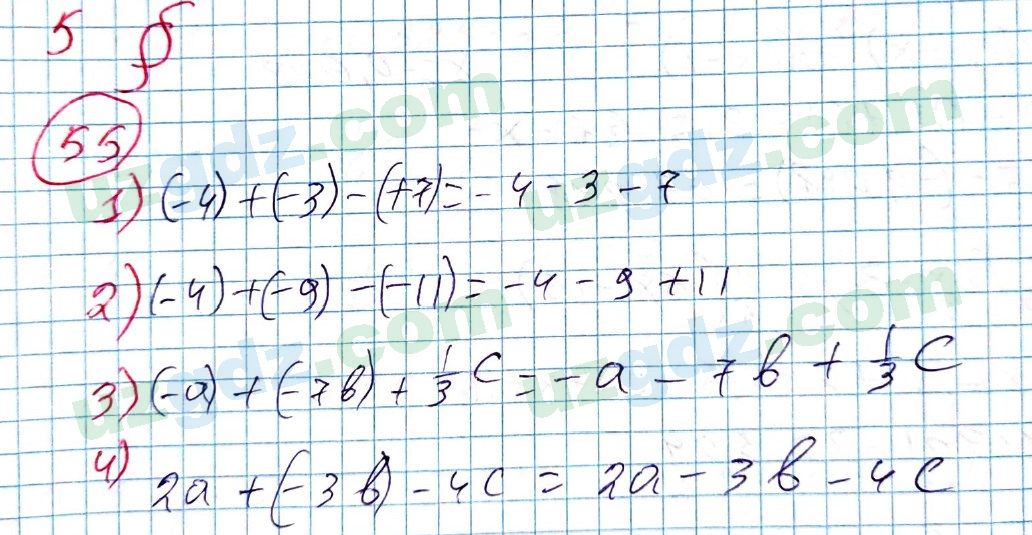 5 §
55
1) (-4) + (-3) - (+7) = -4 - 3 - 7
2) (-4) + (-9) - (-11) = -4 - 9 + 11
3) (-a) + (-7b) + 1/3 c = -a - 7b + 1/3 c
4) 2a + (-3b) - 4c = 2a - 3b - 4c
uzgdz.com uzgdz.com
uzgdz.com uzgdz.com